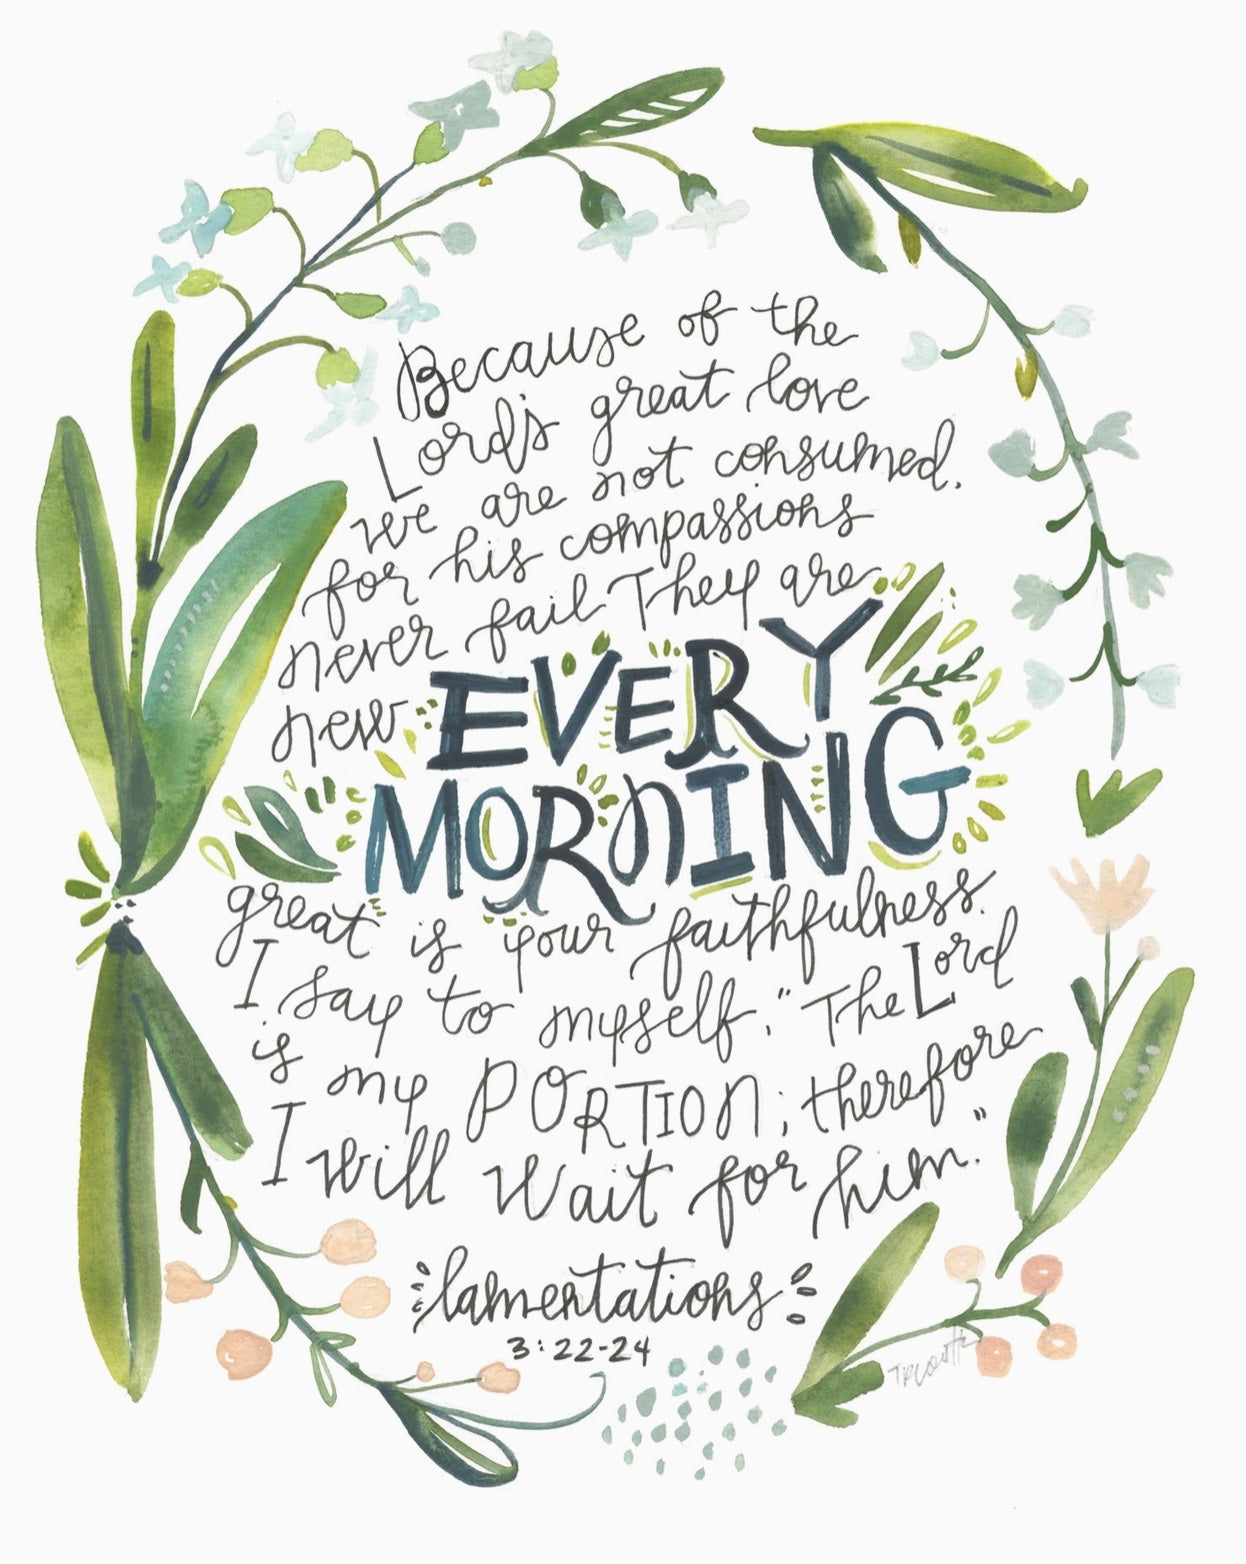 Because of the
Lord's great love
we are not consumed,
for his compassions
never fail They are
new EVERY
MORNING
great is your faithfulness.
I say to myself, "The Lord
is my PORTION; therefore
I will wait for him."
lamentations
3:22-24